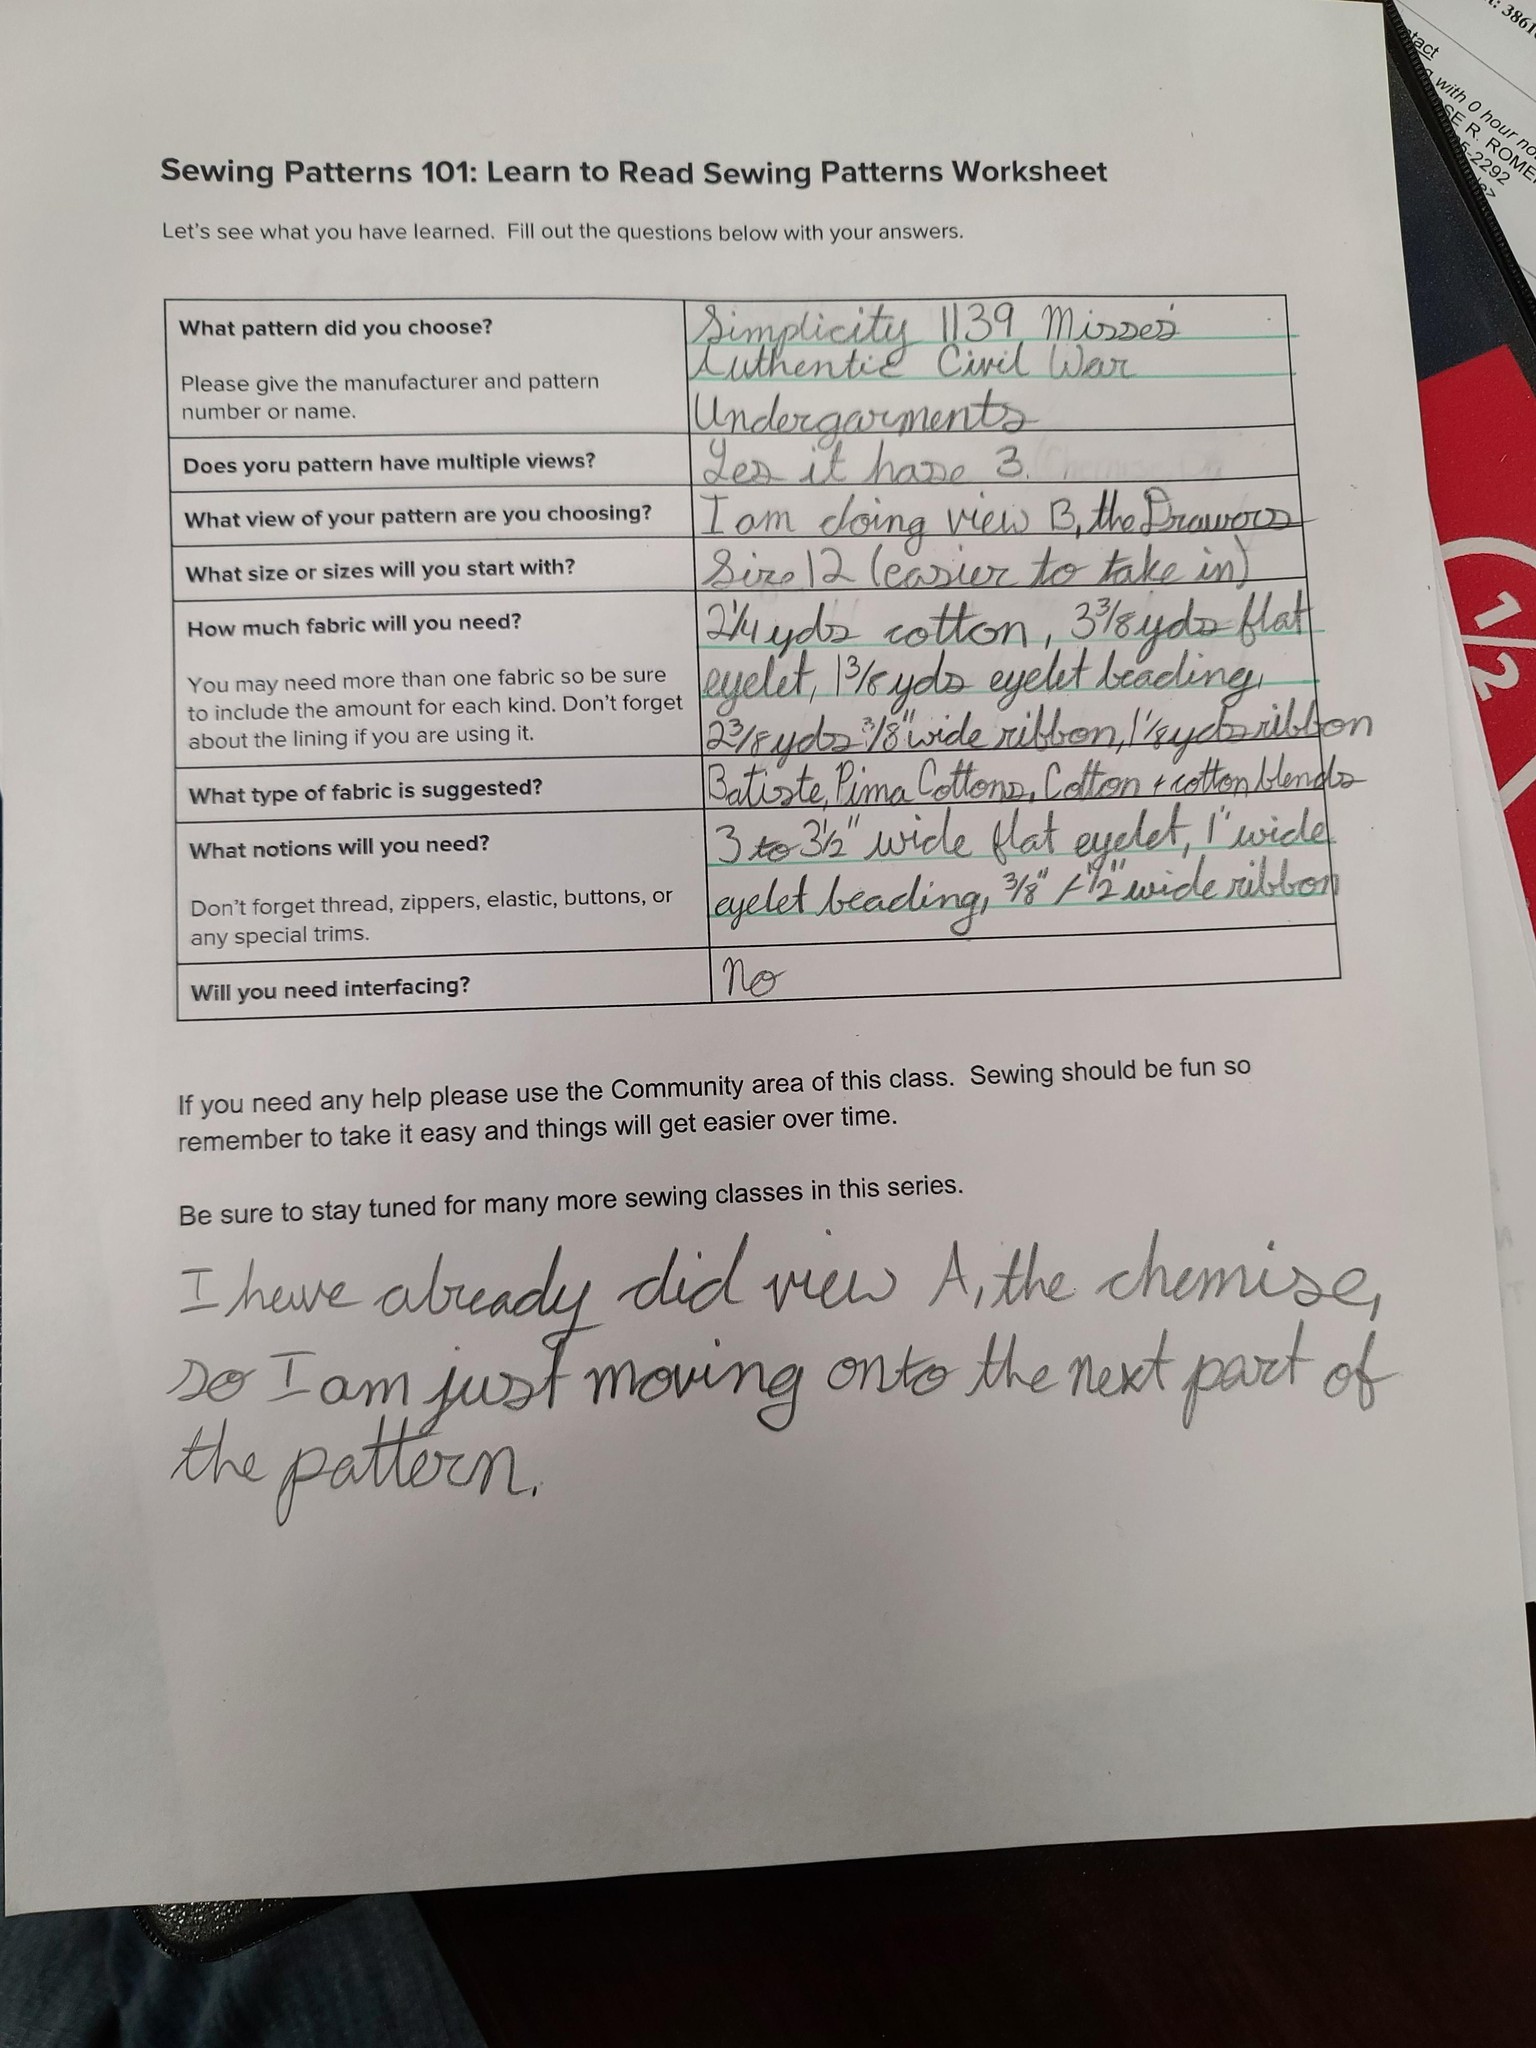 Sewing Patterns 101: Learn to Read Sewing Patterns Worksheet
Let's see what you have learned. Fill out the questions below with your answers.
What pattern did you choose?
Please give the manufacturer and pattern
number or name.
Simplicity 1139 Misses'
Authentic Civil War
Undergarments
Does yoru pattern have multiple views?
Yes it hase 3.
What view of your pattern are you choosing?
I am doing view B, the Drawers
What size or sizes will you start with?
Size 12 (easier to take in)
How much fabric will you need?
You may need more than one fabric so be sure
to include the amount for each kind. Don't forget
about the lining if you are using it.
2 1/4 yds cotton, 3 3/8 yds flat
eyelet, 1 3/8 yds eyelet beading,
2 3/8 yds 3/8" wide ribbon, 1 1/8 yds ribbon
What type of fabric is suggested?
Batiste, Pima Cottons, Cotton + cotton blends
What notions will you need?
Don't forget thread, zippers, elastic, buttons, or
any special trims.
3 to 3 1/2" wide flat eyelet, 1" wide
eyelet beading, 3/8" + 1/2" wide ribbon
Will you need interfacing?
no
If you need any help please use the Community area of this class. Sewing should be fun so
remember to take it easy and things will get easier over time.
Be sure to stay tuned for many more sewing classes in this series.
I have already did view A, the chemise,
so I am just moving onto the next part of
the pattern.
3861
tact
with 0 hour no
SE R. ROME
5-2292
1/2